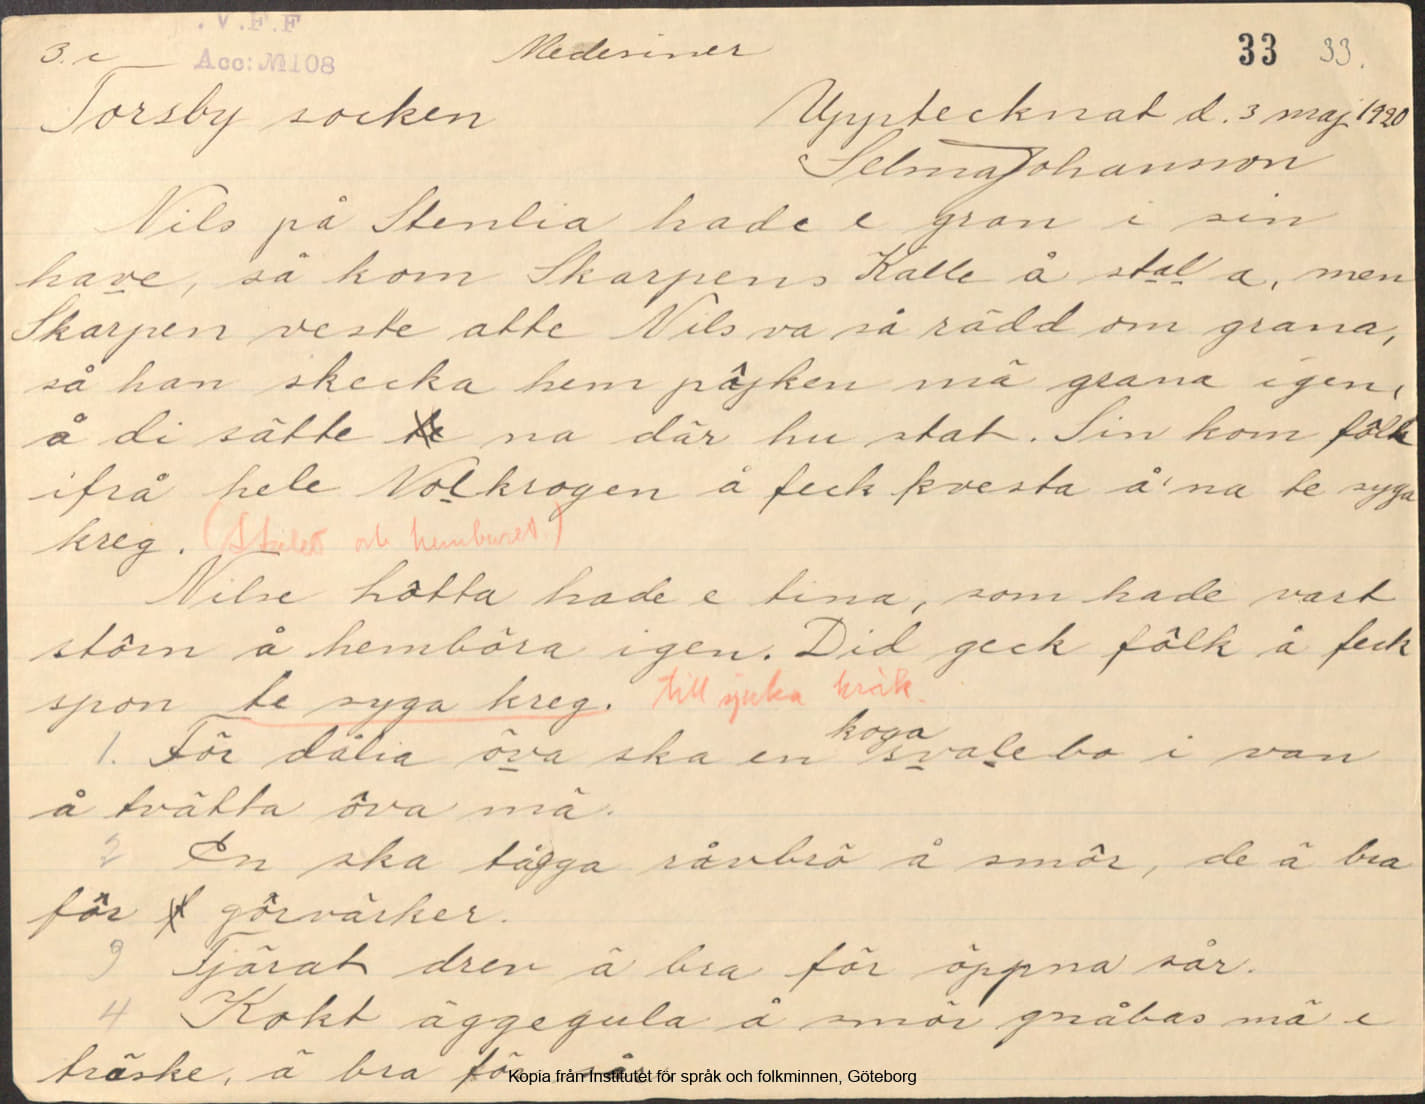 . V.F.F
3. c Acc: M108 Medesiner 33 33.
Torsby socken Upptecknat d. 3 maj 1920
Selma Johansson
Nils på Stenlia hade e gran i sin
have, så kom Skarpens Kalle å stal a, men
Skarpen veste atte Nils va så rädd om grana,
så han skecka hem påjken mä grana igen,
å di sätte na där hu stat. Sin kom fôlk
ifrå hele Volkrogen å feck kvesta å' na te syga
kreg. (Stulet och hemburet.)
Nilse hôtta hade e tina, som hade vart
stôrn å hembôra igen. Did geck fôlk å feck
spon te syga kreg. till sjuka kräk.
1. För dålia öva ska en koga svalebo i van
å tvätta ôva mä.
2 En ska tågga råvbrö å smôr, de ä bra
fôr gôrvärker.
3 Tjärat drev ä bra för öppna sår.
4 Kokt äggegula å smör gnåbas mä e
träske, ä bra för sår.
Kopia från Institutet för språk och folkminnen, Göteborg